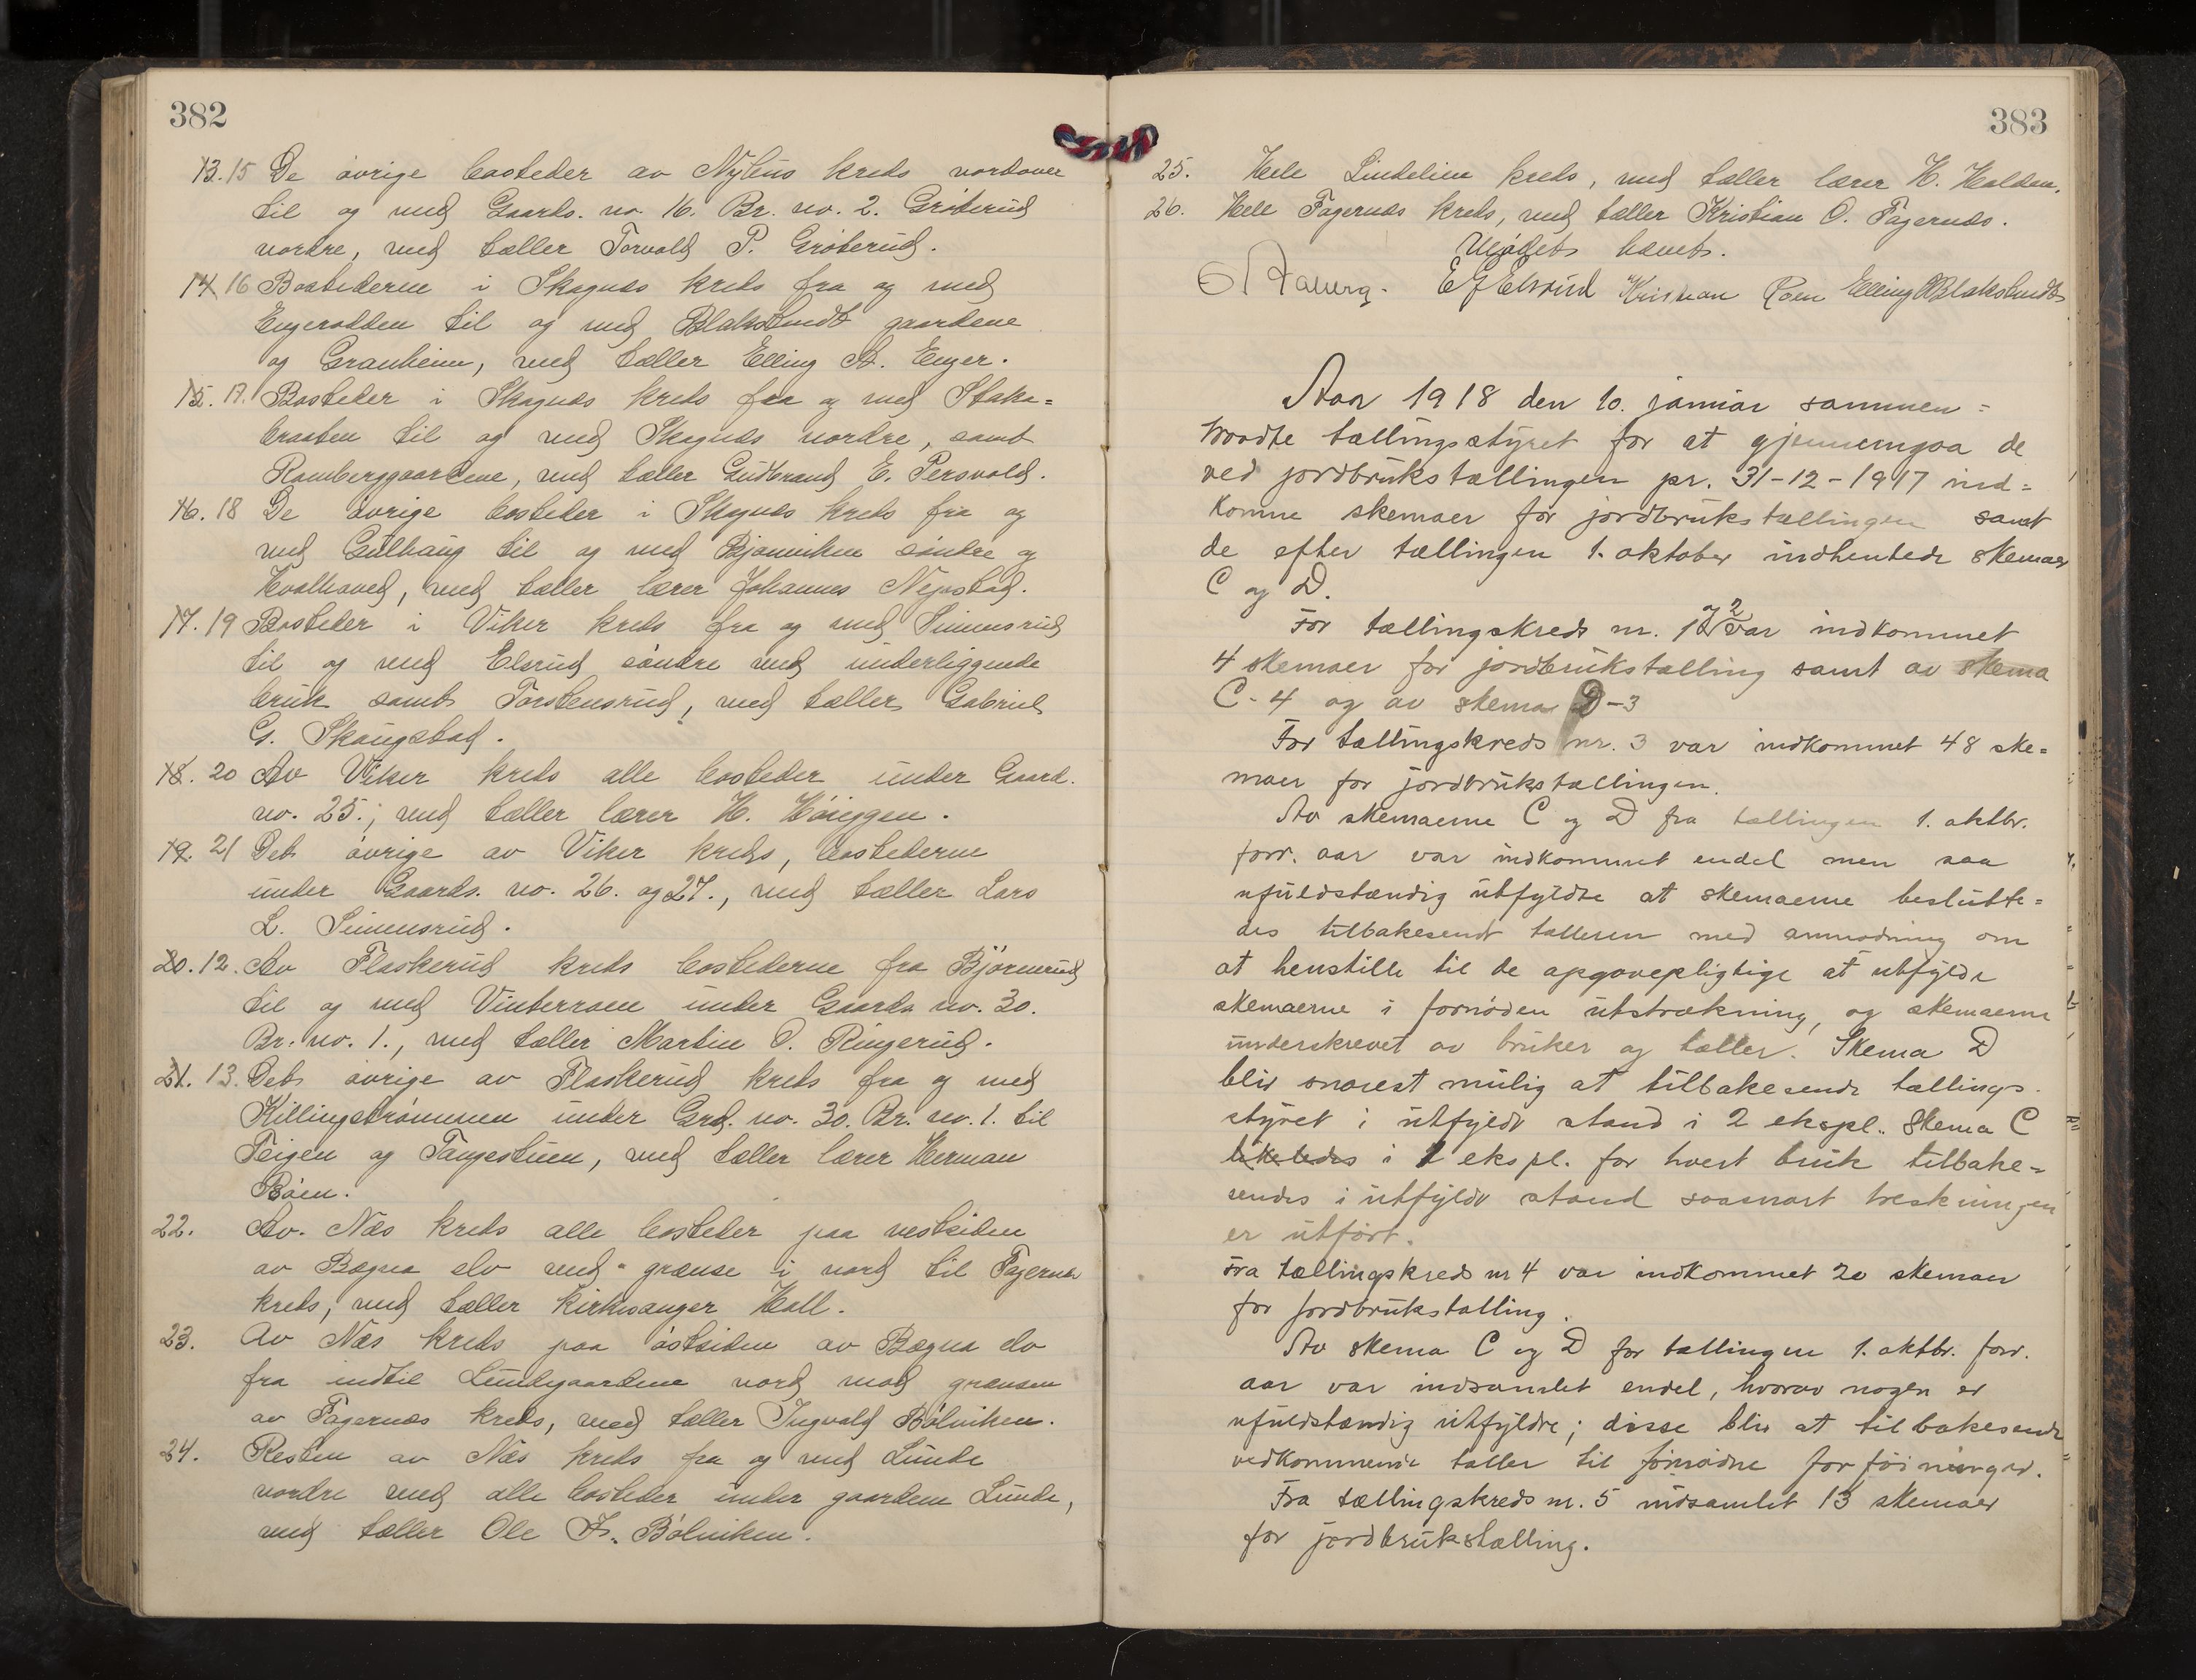 382
13. 15 De øvrige bosteder av Nylens kreds nordover
til og med Gaards. no. 16. Br. no. 2. Grøterud
nordre, med tæller Torvald P. Grøterud.
14 16 Bostederne i Skagnæs kreds fra og med
Engerodden til og med Blakstvedt gaardene
og Granheim, med tæller Elling A. Enger.
15. 17. Bosteder i Skagnæs kreds fra og med Stake=
braaten til og med Skagnæs nordre, samt
Ramberggaardene, med tæller Gudbrand E. Persvold.
16. 18 De øvrige bosteder i Skagnæs kreds fra og
med Gulhaug til og med Bjønviken søndre og
Hvalhaved, med tæller lærer Johannes Nepstad.
17. 19 Bosteder i Viker kreds fra og med Simensrud
til og med Elsrud søndre med underliggende
bruk samt Torstensrud, med tæller Gabriel
G. Skaugstad.
18. 20 Av Viker kreds alle bosteder under Gaard.
no. 25., med tæller lærer H. Høiggen.
19. 21 Det øvrige av Viker kreds, bostederne
under Gaards. no. 26. og 27., med tæller Lars
L. Simensrud.
20. 12. Av Flaskerud kreds bostederne fra Bjørnerud
til og med Vinterroen under Gaards no. 30.
Br. no. 1., med tæller Martin O. Ringerud.
21. 13. Det øvrige av Flaskerud kreds fra og med
Killingstrømmen under Grd. no. 30. Br. no. 1. til
Teigen og Tangestuen, med tæller lærer Herman
Bøen.
22. Av. Næs kreds alle bosteder paa vestsiden
av Bægna elv med grænse i nord til Fagernæs
kreds, med tæller kirkesanger Hall.
23. Av Næs kreds paa østsiden av Bægna elv
fra indtil Lundegaardene nord mod grænsen
av Fagernæs kreds, med tæller Ingvald Bølviken.
24. Resten av Næs kreds fra og med Lunde
nordre med alle bosteder under gaardene Lunde,
med tæller Ole Bølviken.
383
25. Hele Lindelien kreds, med tæller lærer H. Halden.
26. Hele Fagernæs kreds, med tæller Kristian O. Fagernæs.
Mødet hævet.
E G Elsrud Kristian Roen Elling Blakstvedt
Aar 1918 den 10. januar sammen=
traadte tællingsstyret for at gjennemgaa de
ved jordbrukstællingen pr. 31-12-1917 ind=
komne skemaer for jordbrukstællingen samt
de efter tællingen 1. oktober indhentede skemaer
C og D.
For tællingskreds nr. 1 og 2 var indkommet
4 skemaer for jordbrukstælling samt av skema
C - 4 og av skema D - 3
For tællingskreds nr. 3 var indkommet 48 ske=
maer for jordbrukstællingen.
Av skemaerne C og D fra tællingen 1. oktbr.
forr. aar var indkommet endel men saa
ufuldstændig utfyldte at skemaerne beslutte=
des tilbakesendt tælleren med anmodning om
at henstille til de opgavepligtige at utfylde
skemaerne i fornøden utstrækning, og skemaerne
underskrevet av bruker og tæller. Skema D
bliv snarest mulig at tilbakesende tællings-
styret i utfyldt stand i 2 ekspl. Skema C
likeledes i 1 ekspl. for hvert bruk tilbake=
sendes i utfyldt stand saasnart treskningen
er utført.
Fra tællingskreds nr 4 var indkommet 20 skemaer
for jordbrukstælling.
Av skema C og D for tællingen 1. oktbr. forr.
aar var indsamlet endel, hvorav nogen er
ufuldstændig utfyldte; disse bliv at tilbakesende
vedkommende tæller til fornødne forføininger.
Fra tællingskreds nr. 5 indsamlet 13 skemaer
for jordbrukstælling.